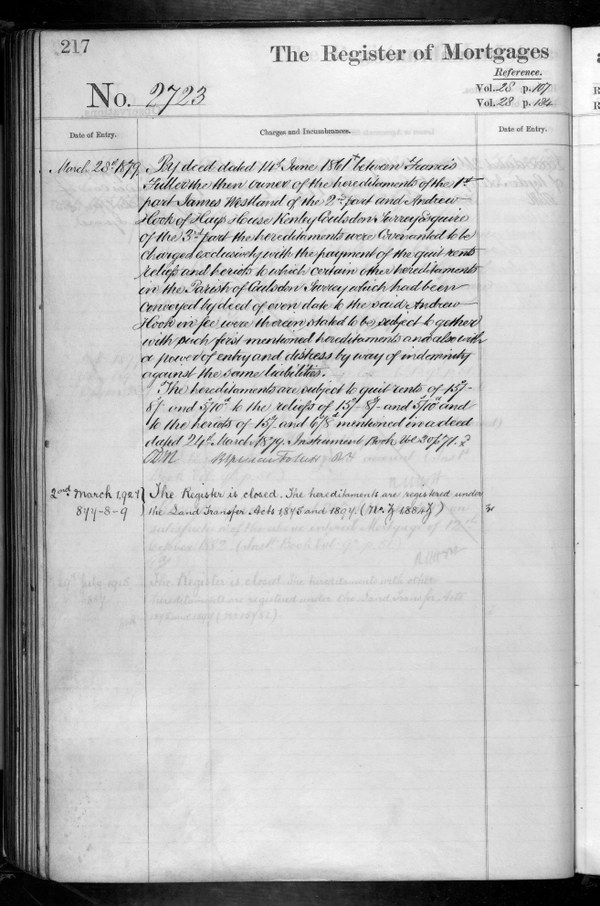 217
The Register of Mortgages
Reference.
No. 2723
Vol. 28 p. 107
Vol. 28 p. 184
Date of Entry.
Charges and Incumbrances.
Date of Entry.
March 28th 1879
By deed dated 14th June 1861 between Francis
Fuller the then owner of the hereditaments of the 1st
part James Westland of the 2nd part and Andrew
Hook of Hays House Kenley Coulsdon Surrey Esquire
of the 3rd part the hereditaments were Covenanted to be
charged exclusively with the payment of the quit rents
reliefs and heriots to which certain other hereditaments
in the Parish of Coulsdon Surrey which had been
conveyed by deed of even date to the said Andrew
Hook in fee were therein stated to be subject together
with such first mentioned hereditaments and also with
a power of entry and distress by way of indemnity
against the same liabilities.
The hereditaments are subject to quit rents of 15/-
8/- and 5/10d to the reliefs of 15/- 8/- and 5/10d and
to the heriots of 15/- and 6/8d mentioned in a deed
dated March 1879. Instrument Book
2nd March 1927
877-8-9
The Register is closed. The hereditaments are registered under
the Land Transfer Acts 1875 and 1897. (No. Z 1884Z)
The Register is closed. The hereditaments with other
hereditaments are registered under the Land Transfer Acts